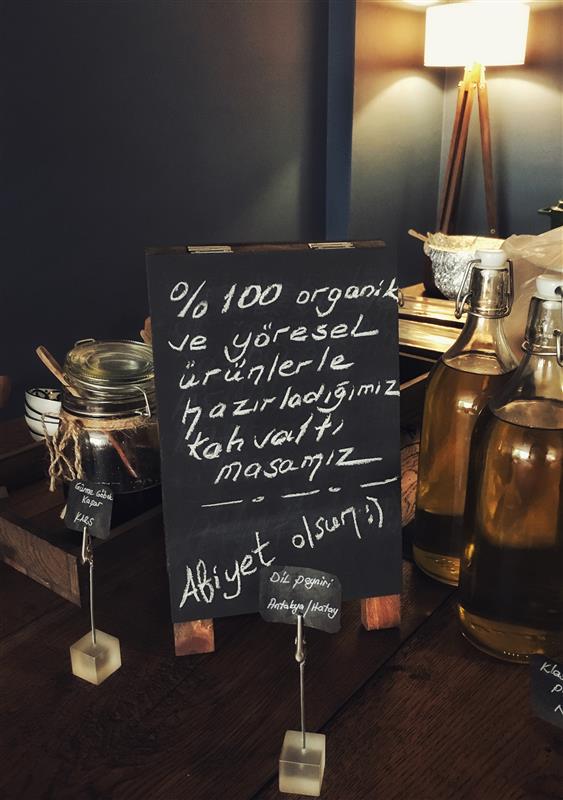 % 100 organik
ve yöresel
ürünlerle
hazırladığımız
kahvaltı
masamız
Afiyet olsun :)
Kapar
KARS
DİL peyniri
Antakya/Hatay